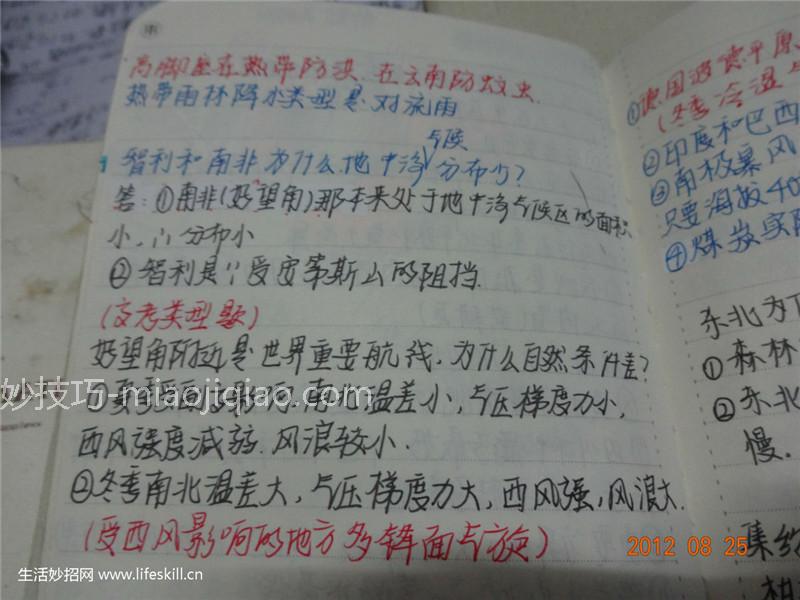 高脚屋在热带防洪.在云南防蚊虫.
热带雨林降水类型是对流雨
智利和南非为什么地中海气候分布少?
答:①南非(好望角)那本来处于地中海气候区的面积
小,∴分布小
②智利是∵受安第斯山的阻挡.
(高考类型题)
好望角附近是世界重要航线,为什么自然条件差?
①夏季
南北温差小,气压梯度力小,
西风强度减弱.风浪较小.
②冬季南北温差大,气压梯度力大,西风强,风浪大.
(受西风影响的地方多锋面气旋)
①德国波德平原
(冬季冷湿
②印度和巴西
③南极暴风
只要海拔40
④煤炭实际
东北为
①森林
②东北
慢.
集约
柑
妙技巧-miaojiqiao.com
2012 08 25
生活妙招网 www.lifeskill.cn